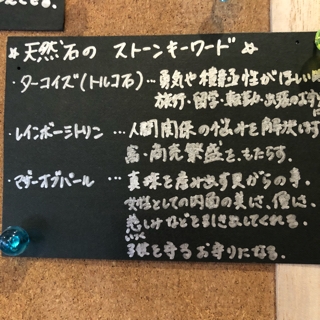 ☆ 天然石の ストーンキーワード ☆
・ターコイズ(トルコ石)…勇気や積極性がほしい
旅行・留学・転勤・出張の
・レインボーシトリン …人間関係の悩みを解決
富・商売繁盛を、もたらす。
・マザーオブパール …真珠を産み出す貝からの
女性としての内面の美しさ、優しさ、
慈しみなどを引き出してくれる。
子供を守るお守りになる。